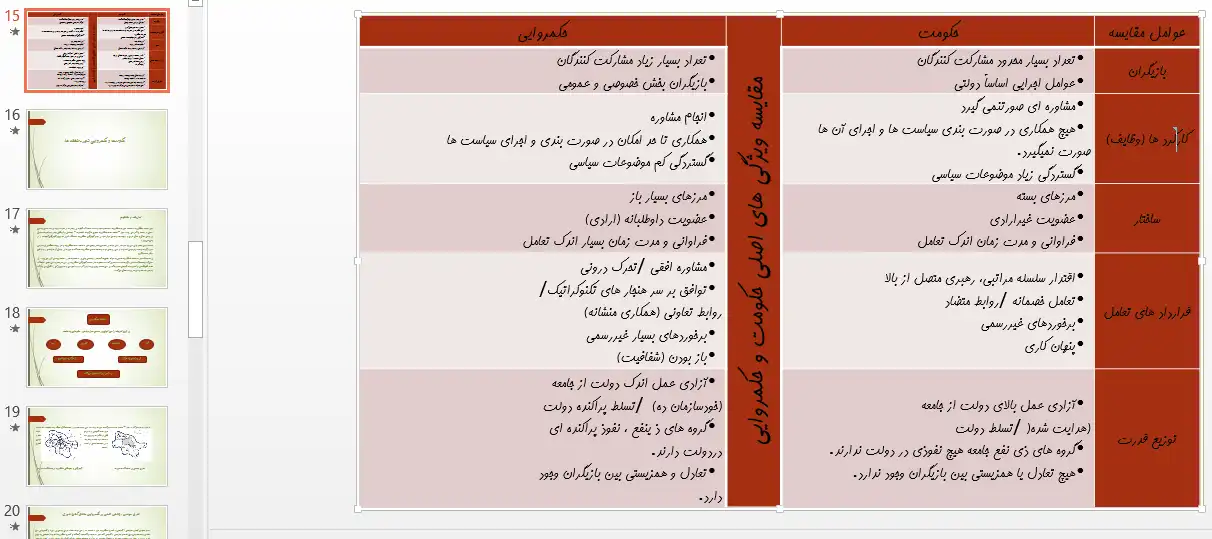 15
16
17
18
19
20
عوامل مقایسه
حکومت
حکمروایی
مقایسه ویژگی های اصلی حکومت و حکمروایی
بازیگران
•تعداد بسیار محدود مشارکت کنندگان
•عوامل اجرایی اساساً دولتی
•تعداد بسیار زیاد مشارکت کنندگان
•بازیگران بخش خصوصی و عمومی
کارکرد ها (وظایف)
•مشاوره ای صورتنمی گیرد
•هیچ همکاری در صورت بندی سیاست ها و اجرای آن ها
صورت نمیگیرد.
•گستردگی زیاد موضوعات سیاسی
•انجام مشاوره
•همکاری تا حد امکان در صورت بندی و اجرای سیاست ها
•گستردگی کم موضوعات سیاسی
ساختار
•مرزهای بسته
•عضویت غیرارادی
•فراوانی و مدت زمان اندک تعامل
•مرزهای بسیار باز
•عضویت داوطلبانه (ارادی)
•فراوانی و مدت زمان بسیار اندک تعامل
قراردار های تعامل
•اقتدار سلسله مراتبی، رهبری متصل از بالا
•تعامل خصمانه /روابط متضاد
•برخوردهای غیررسمی
•پنهان کاری
•مشاوره افقی /تحرک درونی
•توافق بر سر هنجار های تکنوکراتیک/
روابط تعاونی (همکاری منشانه)
•برخوردهای بسیار غیررسمی
•باز بودن (شفافیت)
توزیع قدرت
•آزادی عمل بالای دولت از جامعه
(هدایت شده( /تسلط دولت
•گروه های ذی نفع جامعه هیچ نفوذی در دولت ندارند.
•هیچ تعادل یا همزیستی بین بازیگران وجود ندارد.
•آزادی عمل اندک دولت از جامعه
(خودسازمان ده) /تسلط پراکنده دولت
•گروه های ذ ینفع ، نفوذ پراکنده ای
دردولت دارند.
•تعادل و همزیستی بین بازیگران وجود
دارد.